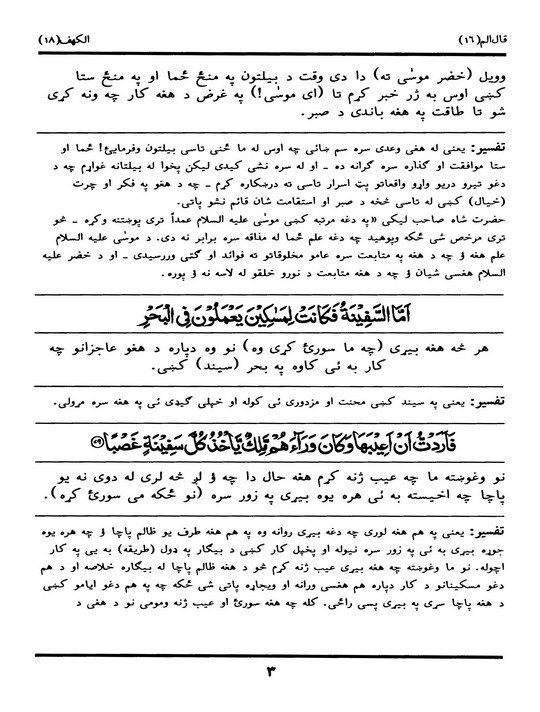 قال الم(۱٦)
الكهف(۱۸)
وويل (خضر موسٰى ته) دا دى وقت د بيلتون په منځ ځما او په منځ ستا
كښى اوس به ژر خبر كړم تا (اى موسٰى!) په غرض د هغه كار چه ونه كړى
شو تا طاقت په هغه باندى د صبر.
تفسير: يعنى له هغى وعدى سره سم ښائى چه اوس له ما ځنى تاسى بيلتون وفرمايئ! ځما او
ستا موافقت او گذاره سره گرانه ده ـ او له سره نشى كيدى ليكن پخوا له بيلتانه غواړم چه د
دغو تيرو دريو واړو واقعاتو پټ اسرار تاسى ته درښكاره كړم ـ چه د هغو په فكر او چرت
(خيال) كښى له تاسى څخه د صبر او استقامت شان قائم نشو پاتى.
حضرت شاه صاحب ليكى «په دغه مرتبه كښى موسٰى عليه السلام عمداً ترى پوښتنه وكړه ـ څو
ترى مرخص شى ځكه وپوهيد چه دغه علم ځما له مذاقه سره برابر نه دى. د موسٰى عليه السلام
علم هغه ؤ چه د هغه په متابعت سره عامو مخلوقاتو ته فوائد او گټى وررسيدى ـ او د خضر عليه
السلام هغسى شيان ؤ چه د هغه متابعت د نورو خلقو له لاسه نه ؤ پوره.
اَمَّا السَّفِيْنَةُ فَكَانَتْ لِمَسٰكِيْنَ يَعْمَلُوْنَ فِى الْبَحْرِ
هر څه هغه بيړى (چه ما سورئ كړى وه) نو وه دپاره د هغو عاجزانو چه
كار به ئى كاوه په بحر (سيند) كښى.
تفسير: يعنى په سيند كښى محنت او مزدورى ئى كوله او خپلى گيډى ئى په هغه سره مړولى.
فَاَرَدْتُّ اَنْ اَعِيْبَهَا وَكَانَ وَرَآءَهُمْ مَّلِكٌ يَّاْخُذُ كُلَّ سَفِيْنَةٍ غَصْبًا ۝۷۹
نو وغوښته ما چه عيب ژنه كړم هغه حال دا چه ؤ لږ څه لرى له دوى نه يو
پاچا چه اخيسته به ئى هره يوه بيړى په زور سره (نو ځكه مى سورئ كړه).
تفسير: يعنى په هم هغه لورى چه دغه بيړى روانه وه په هم هغه طرف يو ظالم پاچا ؤ چه هره يوه
جوړه بيړى به ئى په زور سره نيوله او پخپل كار كښى د بيگار په ډول (طريقه) به يى په كار
اچوله. نو ما وغوښته چه هغه بيړى عيب ژنه كړم څو د هغه ظالم پاچا له بيگاره خلاصه او د هم
دغو مسكينانو د كار دپاره هم هغسى ورانه او ويجاړه پاتى شى ځكه چه په هم دغو ايامو كښى
د هغه پاچا سړى په بيړى پسى راځى. كله چه هغه سورئ او عيب ژنه ومومى نو د هغى د
۳